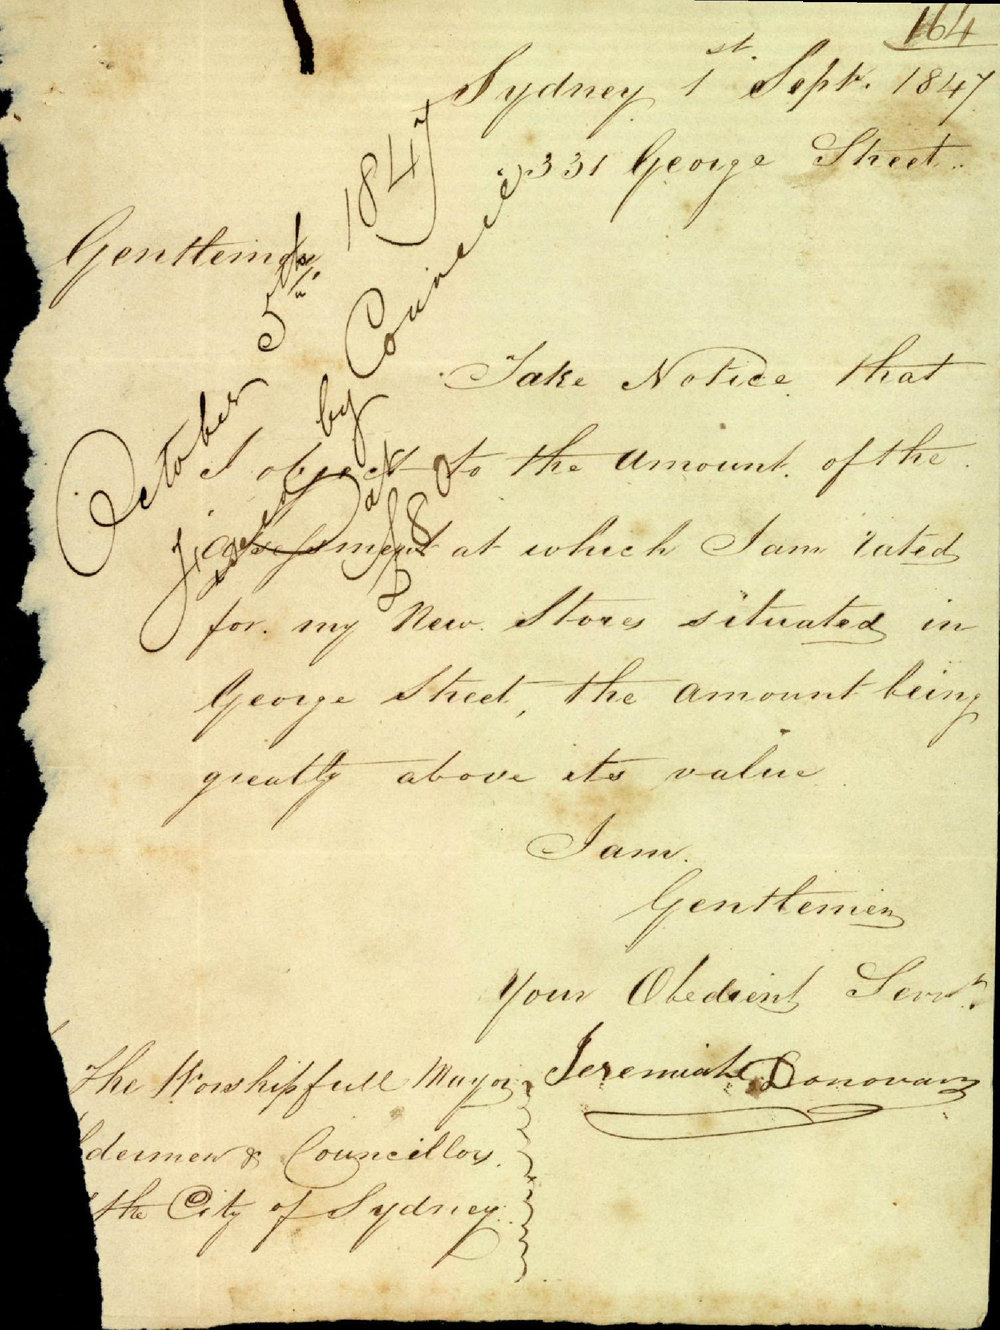 164
Sydney 1st Sept. 1847
331 George Street
Gentlemen
October 5th 1847
Fixed by Council
at £80
Take Notice that
I object to the amount of the
assessment at which I am rated
for my New Stores situated in
George Street, the amount being
greatly above its value
I am
Gentlemen
Your Obedient Servt
Jeremiah Donovan
The Worshipfull Mayor
ldermen & Councillors
the City of Sydney